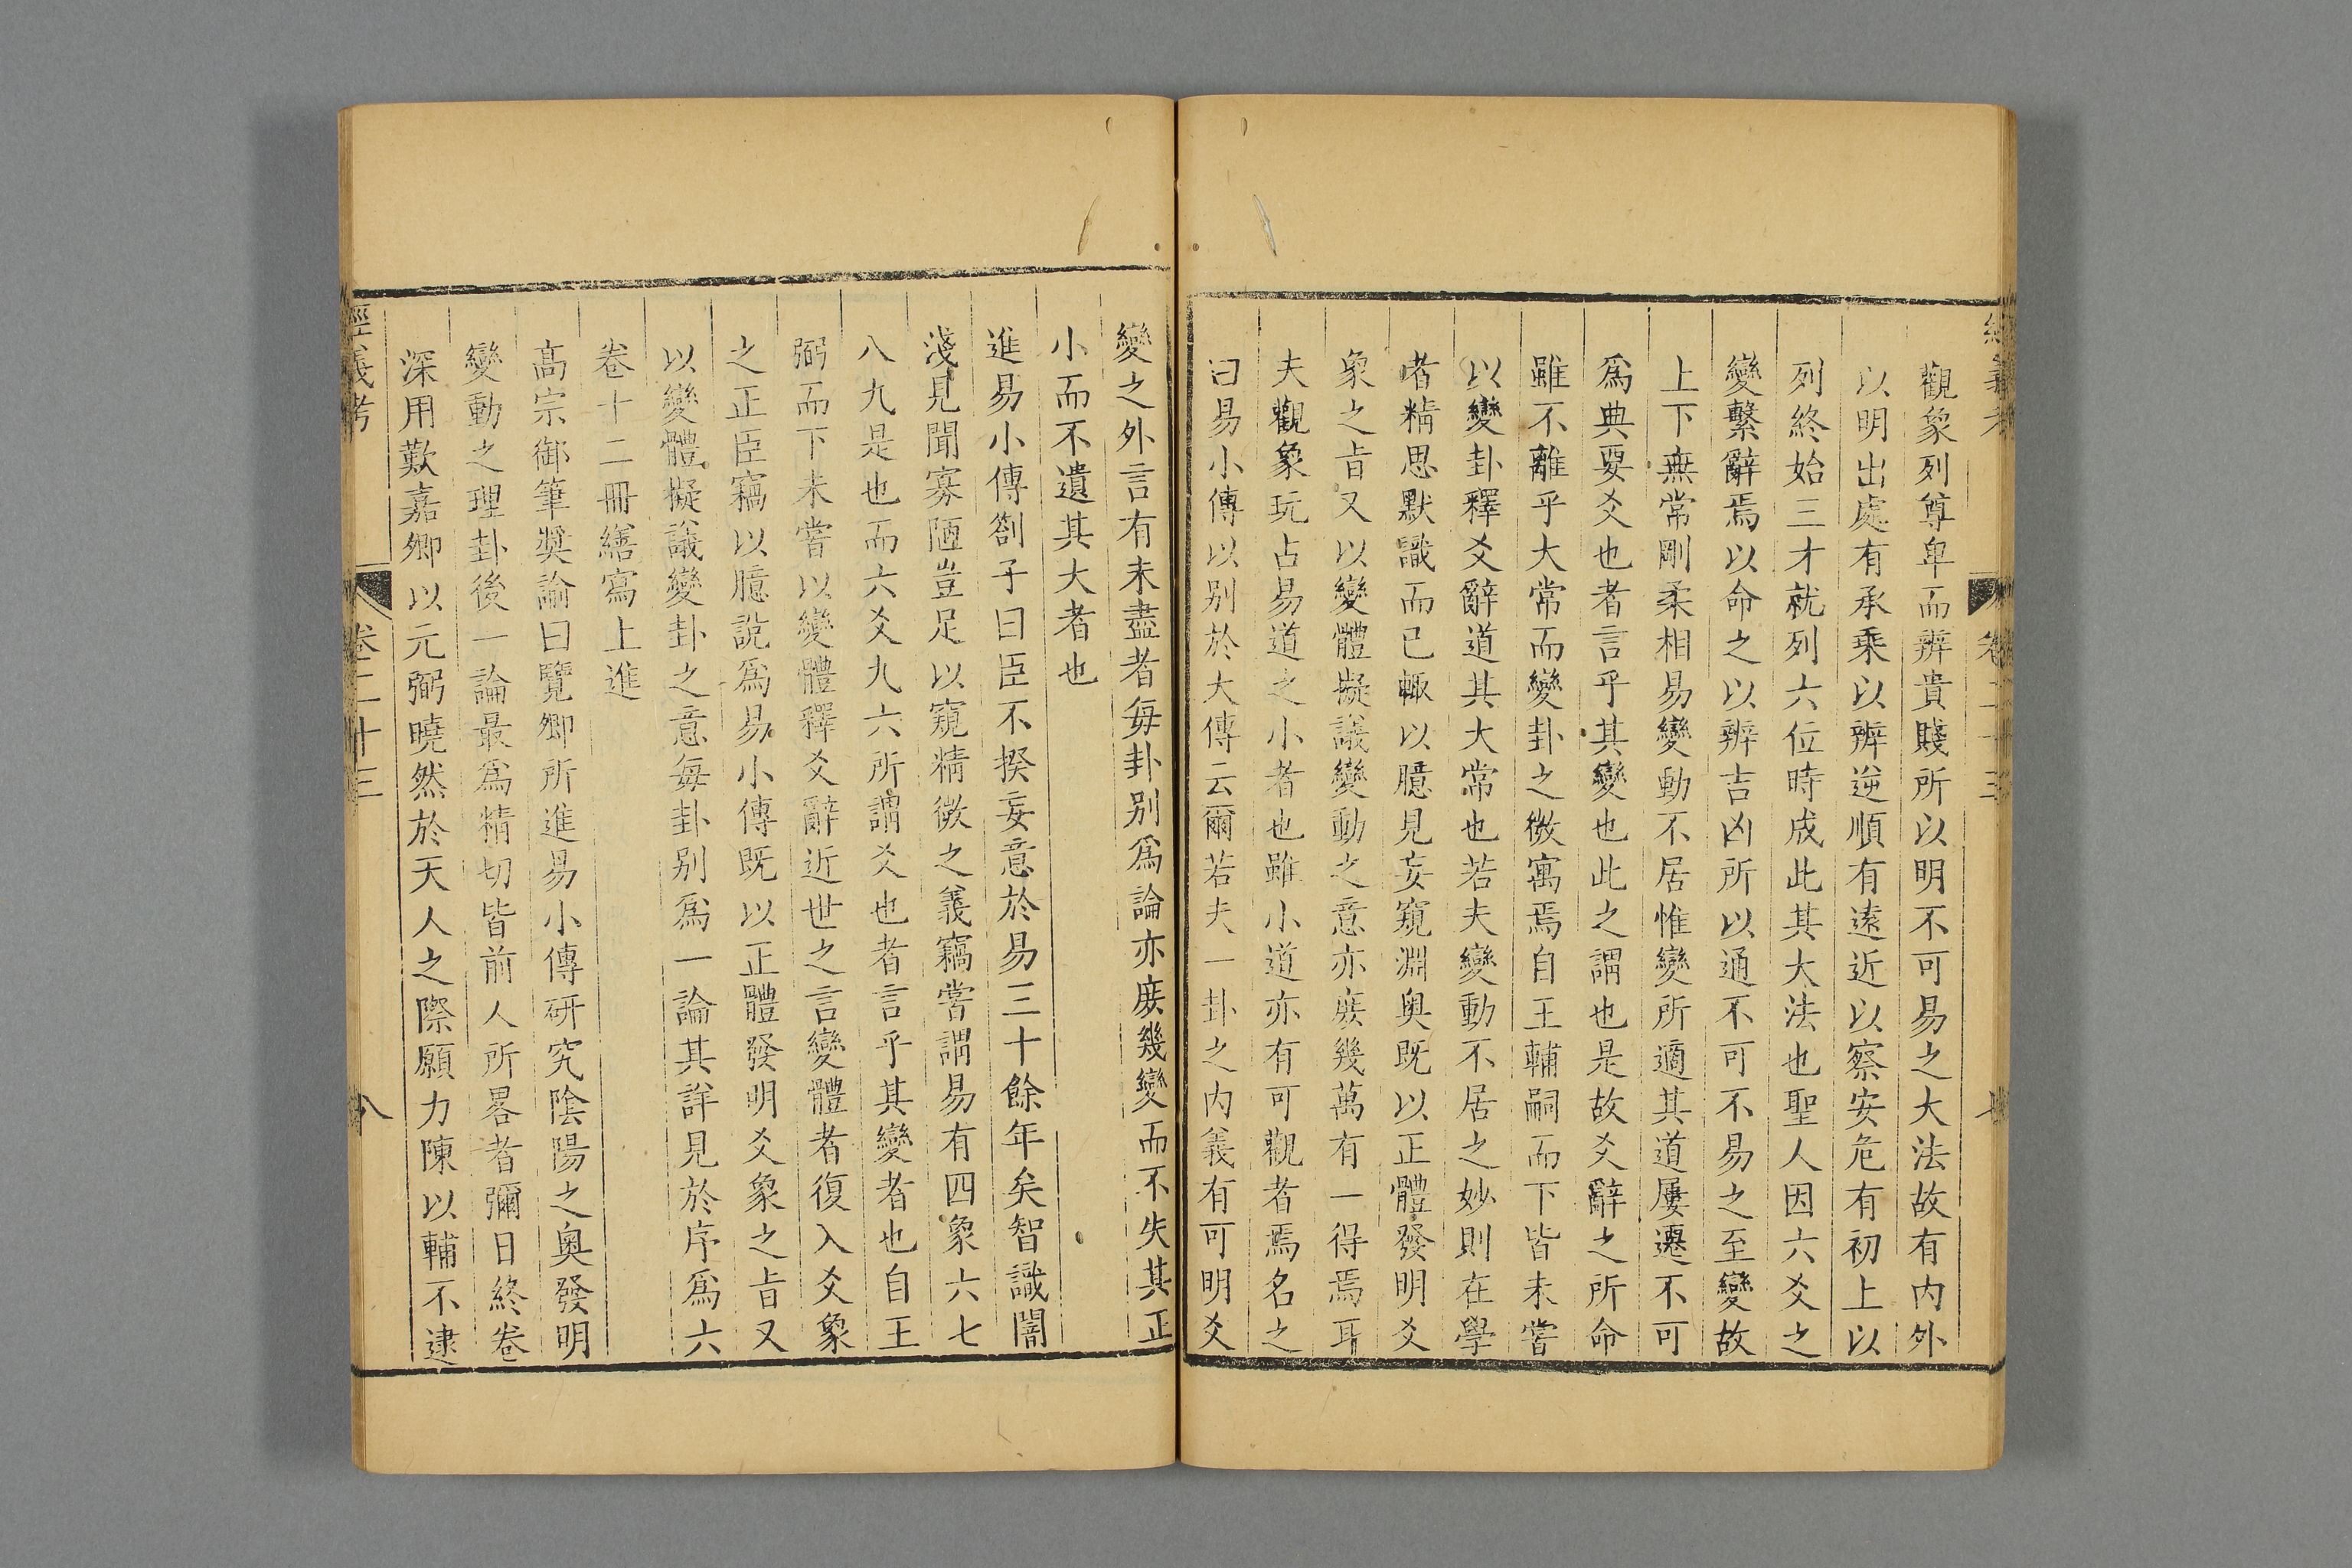 觀象列尊卑而辨貴賤所以明不可易之大法故有内外
以明出處有承乘以辨逆順有遠近以察安危有初上以
列終始三才就列六位時成此其大法也聖人因六爻之
變繫辭焉以命之以辨吉凶所以通不可不易之至變故
上下無常剛柔相易變動不居惟變所適其道屢遷不可
爲典要爻也者言乎其變也此之謂也是故爻辭之所命
雖不離乎大常而變卦之微寓焉自王輔嗣而下皆未嘗
以變卦釋爻辭道其大常也若夫變動不居之妙則在學
者精思默識而已輙以臆見妄窺淵奥既以正體發明爻
象之㫖又以變體擬議變動之意亦庻幾萬有一得焉耳
夫觀象玩占易道之小者也雖小道亦有可觀者焉名之
曰易小傳以别於大傳云爾若夫一卦之内義有可明爻
變之外言有未盡者每卦别爲論亦庻幾變而不失其正
小而不遺其大者也
進易小傳劄子曰臣不揆妄意於易三十餘年矣智識闇
淺見聞寡陋豈足以窺精微之義竊嘗謂易有四象六七
八九是也而六爻九六所謂爻也者言乎其變者也自王
弼而下未嘗以變體釋爻辭近世之言變體者復入爻象
之正臣竊以臆說爲易小傳既以正體發明爻象之㫖又
以變體擬議變卦之意每卦别爲一論其詳見於序爲六
卷十二冊繕寫上進
高宗御筆奬諭曰覽卿所進易小傳研究陰陽之奥發明
變動之理卦後一論最爲精切皆前人所畧者彌日終卷
深用歎嘉卿以元弼曉然於天人之際願力陳以輔不逮
經義考
卷二十三
八